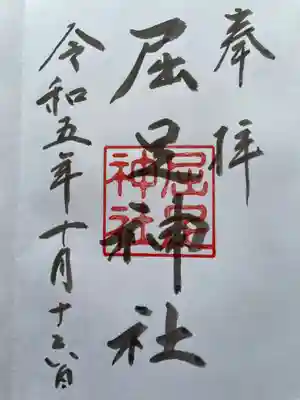 奉拝
屈足神社
令和五年十月十六日
屈足
神社